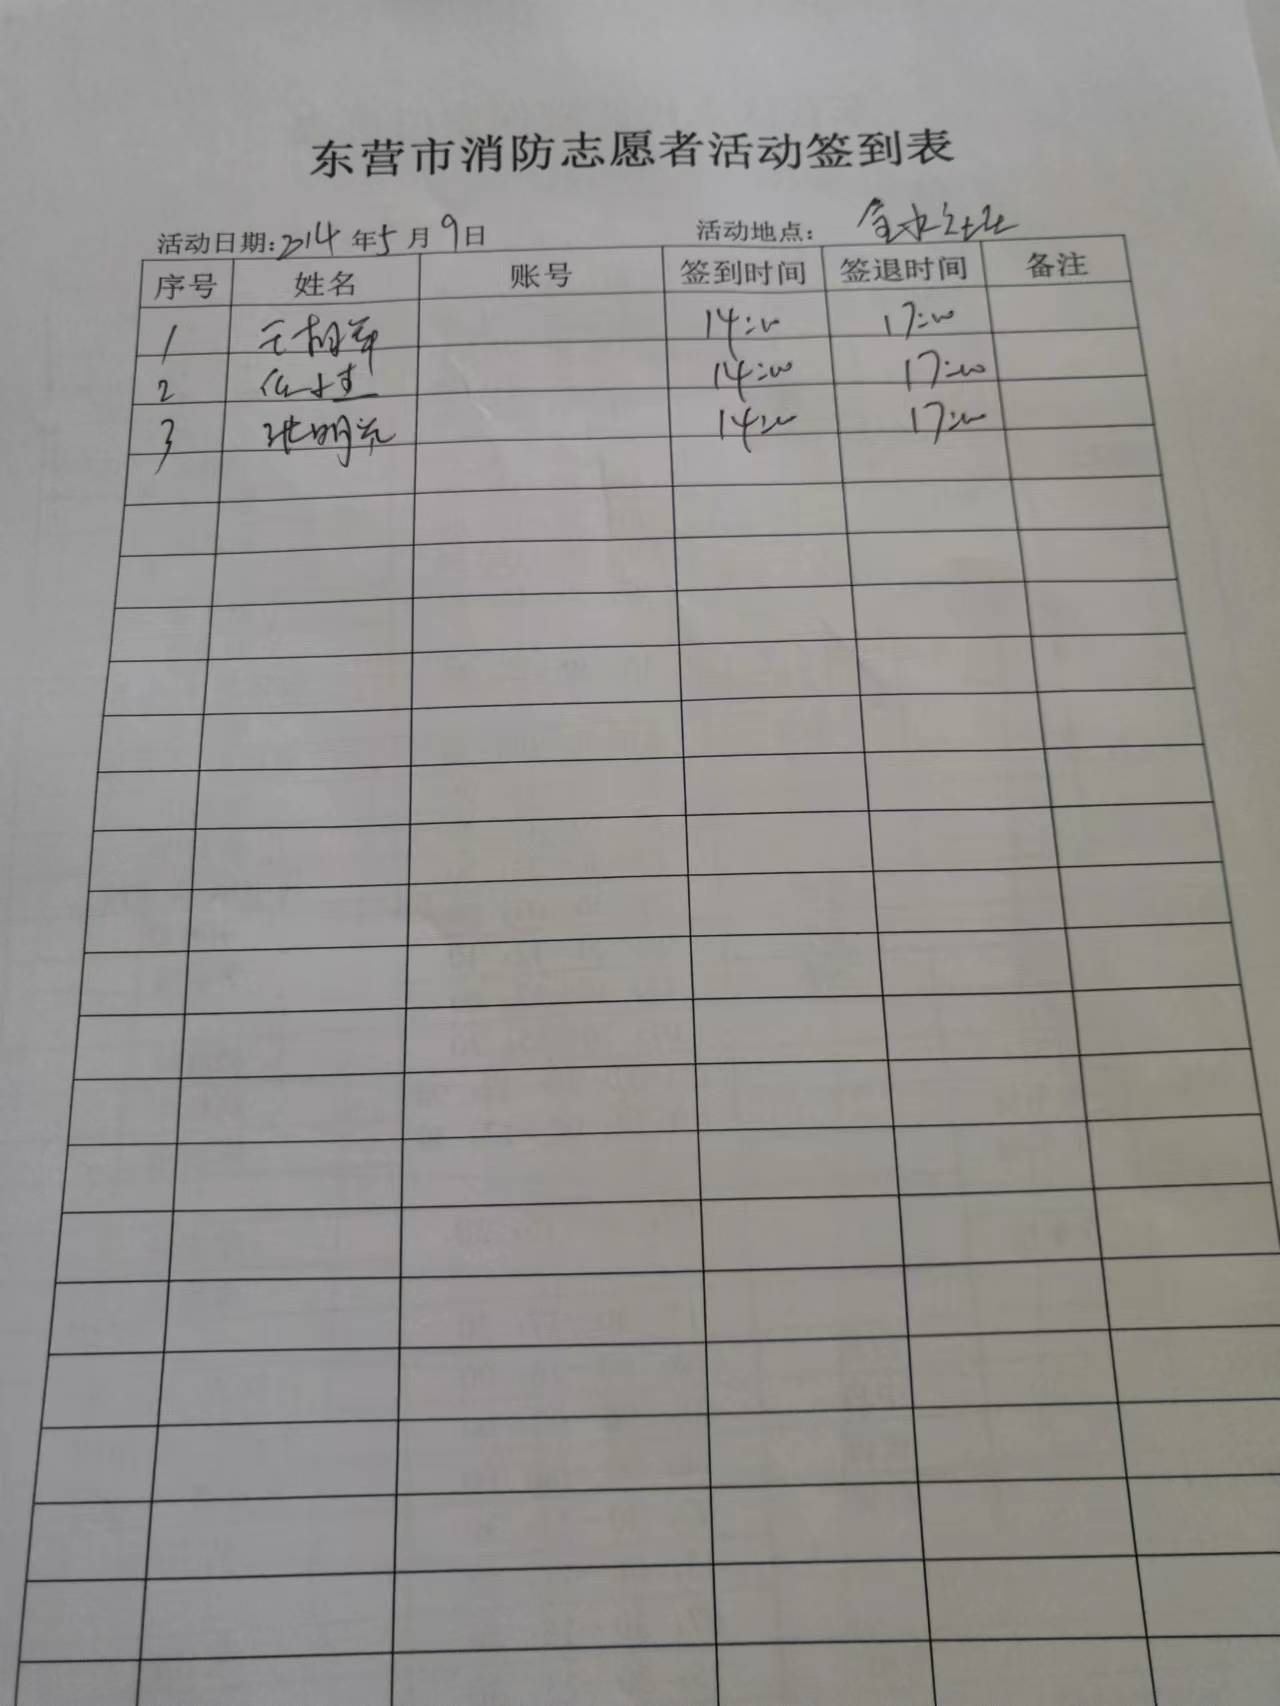 东营市消防志愿者活动签到表
活动日期:2014年5月9日 活动地点:
序号 姓名 账号 签到时间 签退时间 备注
1 14:00 17:00
2 14:00 17:00
3 张明 14:00 17:00